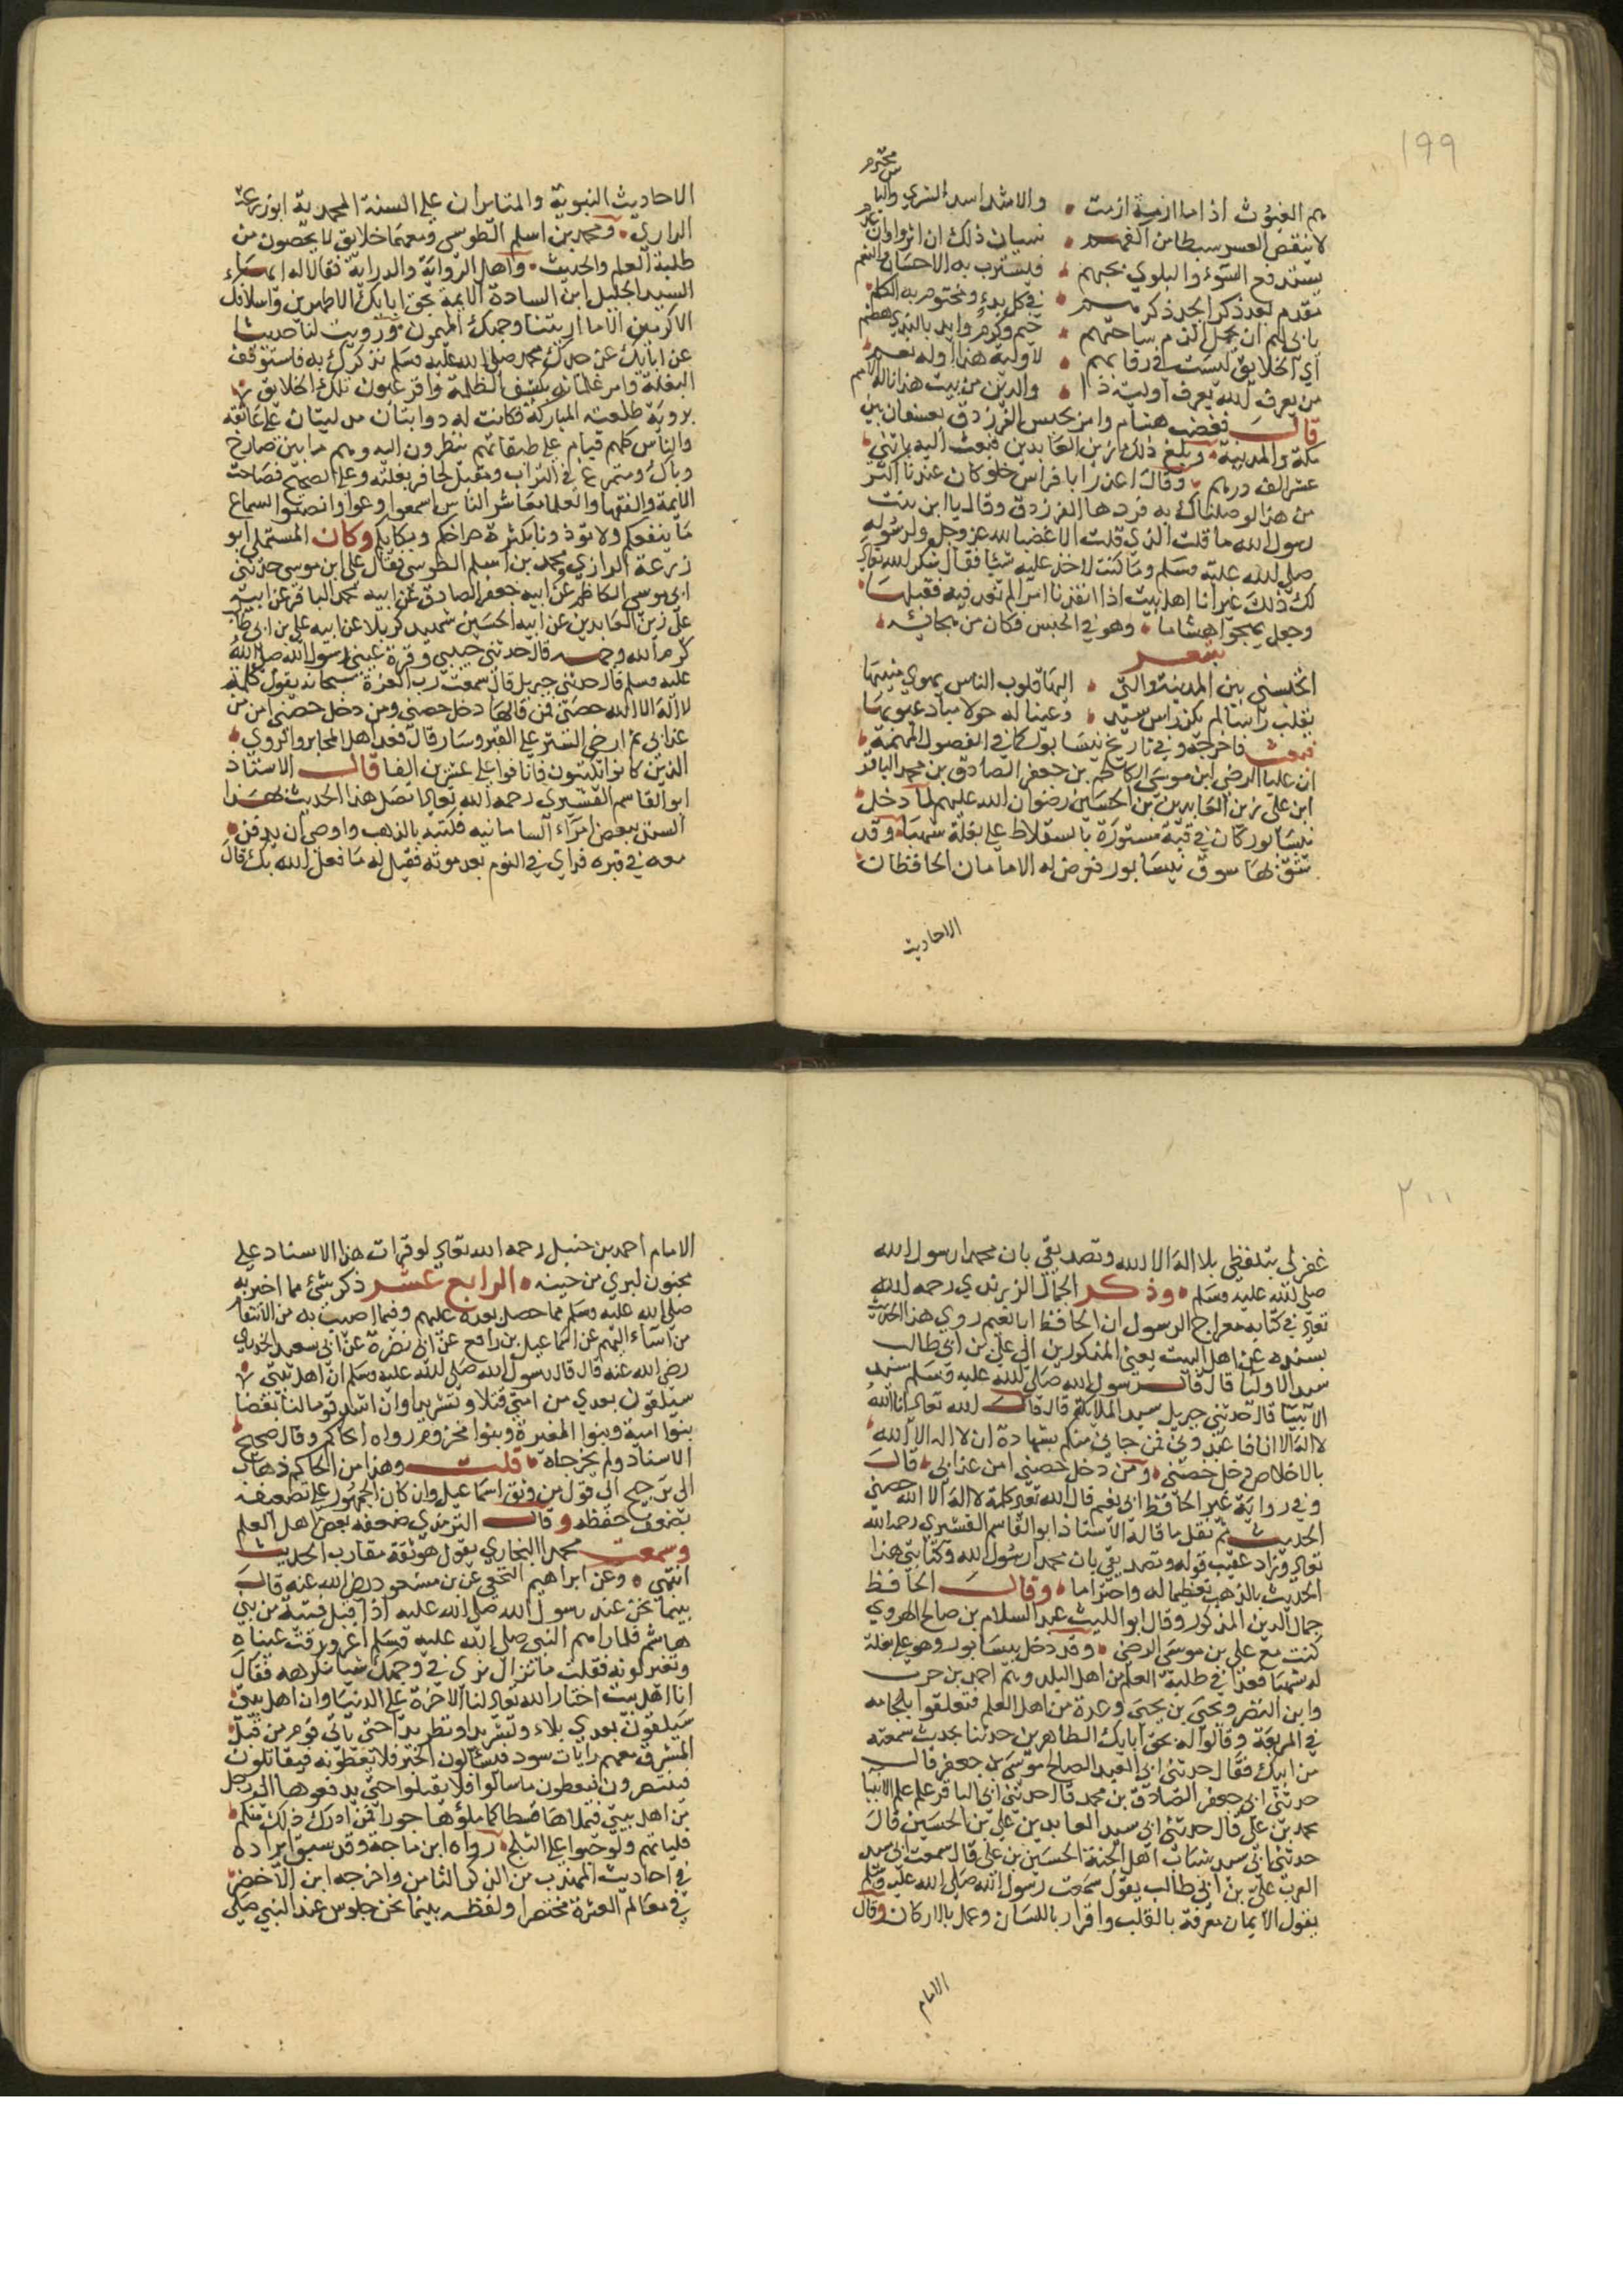 ١٩٩
هم الغيوث اذا ما ازمة ازمت • والاسد اسد الشري والباس محتدم
لا ينقص العسر بسطا من اكفهم • سيان ذلك ان اثروا وان عدموا
يستدفع السوء والبلوي بحبهم • ويسترب به الاحسان والنعم
مقدم بعد ذكر الله ذكرهم • في كل بدء ومختوم به الكلم
يابي لهم ان يحل الذم ساحتهم • خيم كريم وايد بالندي هضم
اي الخلايق ليست في رقابهم • لاولية هذا اوله نعم
من يعرف الله يعرف اولية ذا • والدين من بيت هذا ناله الامم
قال فغضب هشام وامر بحبس الفرزدق بعسفان بين
مكة والمدينة • وبلغ ذلك زين العابدين فبعث اليه باثني
عشر الف درهم • وقال اعذر ابا فراس فلو كان عندنا اكثر
من هذا لوصلناك به فردها الفرزدق وقال يا ابن بنت
رسول الله ما قلت الذي قلت الا غضبا لله عز وجل ولرسوله
صلي الله عليه وسلم وما كنت لاخذ عليه شيا فقال شكر الله تعالي
لك ذلك غير انا اهل بيت اذا انفذنا امرا لم نعد فيه فقبلها
وجعل يهجوا هشاما • وهو في الحبس فكان من هجائه •
شعر
اتحبسني بين المدينة والتي • اليها قلوب الناس يهوي منيبها
يقلب راسا لم يكن راس سيد • وعينا له حولا باد عيوبها
فبعث فاخرجه وفي تاريخ نيسابور كما في الفصول المهمة •
ان عليا الرضي ابن موسي الكاظم بن جعفر الصادق بن محمد الباقر
ابن علي زين العابدين بن الحسين رضوان الله عليهم لما دخل •
نيسابور كان في قبة مستورة بالسقلاط علي بغلة شهبا • وقد
شق لها سوق نيسابور فعرض له الامامان الحافظان
الاحاديث
الاحاديث النبوية والمثابران علي السنة المحمدية ابو زرعة
الرازي • ومحمد بن اسلم الطوسي ومعهما خلايق لا يحصون من
طلبة العلم والحديث • واهل الرواية والدراية فقالا له ايها
السيد الجليل ابن السادة الايمة بحق ابايك الاطهرين واسلافك
الاكرمين الا ما اريتنا وجهك الميمون ورويت لنا حديثا
عن ابايك عن جدك محمد صلي الله عليه وسلم نذكرك به فاستوقف
البغلة وامر غلمانه بكشف المظلة واقر عيون تلك الخلايق
بروية طلعته المباركة فكانت له ذوابتان مدليتان علي عاتقه
والناس كلهم قيام علي طبقاتهم ينظرون اليه وهم ما بين صارخ
وباك ومتمرغ في التراب ومقبل لحافر بغلته وعلا الضجيج فصاحت
الايمة والفقها والعلما معاشر الناس اسمعوا وعوا وانصتوا لسماع
ما ينفعكم ولا توذونا بكثرة صراخكم وبكايكم وكان المستملي ابو
زرعة الرازي ومحمد بن اسلم الطوسي فقال علي ابن موسي حدثني
ابي موسي الكاظم عن ابيه جعفر الصادق عن ابيه محمد الباقر عن ابيه
علي زين العابدين عن ابيه الحسين شهيد كربلا عن ابيه علي بن ابي طالب
كرم الله وجهه قال حدثني حبيبي وقرة عيني رسول الله صلي الله
عليه وسلم قال حدثني جبريل قال سمعت رب العزة سبحانه يقول كلمة
لا اله الا الله حصني فمن قالها دخل حصني ومن دخل حصني امن من
عذابي ثم ارخي الستر علي القبة وسار قال فعد اهل المحابر والدوي •
الذين كانوا يكتبون فانافوا علي عشرين الفا قال الاستاذ
ابو القاسم القشيري رحمه الله تعالي اتصل هذا الحديث بهذا
السند ببعض امراء السامانيه فكتبه بالذهب واوصي ان يدفن •
معه في قبره فراي في النوم بعد موته فقيل له ما فعل الله بك قال
٢٠٠
غفر لي بتلفظي بلا اله الا الله وتصديقي بان محمدا رسول الله
صلي الله عليه وسلم • وذكر الجمال الزرندي رحمه الله
تعالي في كتابه معراج الرسول ان الحافظ ابا نعيم روي هذا الحديث
بسنده عن اهل البيت يعني المذكورين الي علي بن ابي طالب
سيد الاوليا قال قال رسول الله صلي الله عليه وسلم سيد
الانبيا قال حدثني جبريل سيد الملايكة قال قال الله تعالي انا الله
لا اله الا انا فاعبدوني فمن جاءني منكم بشهادة ان لا اله الا الله •
بالاخلاص دخل حصني • ومن دخل حصني امن عذابي • قال
وفي رواية غير الحافظ ابي نعيم قال الله تعالي كلمة لا اله الا الله حصني
الحديث ثم نقل ما قاله الاستاذ ابو القاسم القشيري رحمه الله
تعالي وزاد عقب قوله وتصديقي بان محمدا رسول الله وكتابتي هذا
الحديث بالذهب تعظيما له واحتراما • وقال الحافظ
جمال الدين المذكور وقال ابو الليث عبد السلام بن صالح الهروي
كنت مع علي بن موسي الرضي • وقد دخل نيسابور وهو علي بغلة
له شهبا فغدا في طلبه العلما من اهل البلد وهم احمد بن حرب
وابن النضر ويحيي بن يحيي وعدة من اهل العلم فتعلقوا بلجامه
في المربعة وقالوا له بحق ابايك الطاهرين حدثنا بحديث سمعته
من ابيك فقال حدثني ابي العبد الصالح موسي بن جعفر قال
حدثني ابي جعفر الصادق بن محمد قال حدثني ابي الباقر علم علم الانبيا
محمد بن علي قال حدثني ابي سيد العابدين علي بن الحسين قال
حدثني ابي سيد شباب اهل الجنة الحسين بن علي قال سمعت ابي سيد
العرب علي بن ابي طالب يقول سمعت رسول الله صلي الله عليه وسلم
يقول الايمان معرفة بالقلب واقرار باللسان وعمل بالاركان وقال
الامام
الامام احمد بن حنبل رحمه الله تعالي لو قرات هذا الاسناد علي
مجنون لبري من حينه • الرابع عشر ذكر شي مما اخبر به
صلي الله عليه وسلم مما حصل بعده عليهم وفيما اصيب به من الانتقام
من اساء اليهم عن اسماعيل بن رافع عن ابي نضرة عن ابي سعيد الخدري
رضي الله عنه قال قال رسول الله صلي الله عليه وسلم ان اهل بيتي
سيلقون بعدي من امتي قتلا وتشريدا وان اشد قومنا لنا بغضا
بنوا امية وبنوا المغيرة وبنوا مخزوم رواه الحاكم وقال صحيح
الاسناد ولم يخرجاه • قلت وهذا من الحاكم ذهاب
الي ترجيح الي قول من وثق اسماعيل وان كان الجمهور علي تضعيفه
بضعف حفظه وقال الترمذي ضعفه بعض اهل العلم
وسمعت محمدا البخاري يقول هو ثقة مقارب الحديث
انتهي • وعن ابراهيم النخعي عن بن مسعود رضي الله عنه قال
بينما نحن عند رسول الله صلي الله عليه اذ اقبل فتية من بني
هاشم فلما راهم النبي صلي الله عليه وسلم اغرورقت عيناه
وتغير لونه فقلت ما نزال نري في وجهك شيا نكرهه فقال
انا اهل بيت اختار الله تعالي لنا الاخرة علي الدنيا وان اهل بيتي
سيلقون بعدي بلاء وتشريدا وتطريدا حتي ياتي قوم من قبل
المشرق معهم رايات سود فيسالون الخير فلا يعطونه فيقاتلون
فينتصرون فيعطون ما سالوا فلا يقبلوا حتي يدفعوها الي رجل
من اهل بيتي فيملاها قسطا كما ملؤها جورا فمن ادرك ذلك منكم •
فلياتهم ولو حبوا علي الثلج • رواه ابن ماجة وقد سبق ايراده
في احاديث المهذب من الذكر الثامن واخرجه ابن الاخضر
في معالم العترة مختصرا ولفظه بينما نحن جلوس عند النبي صلي